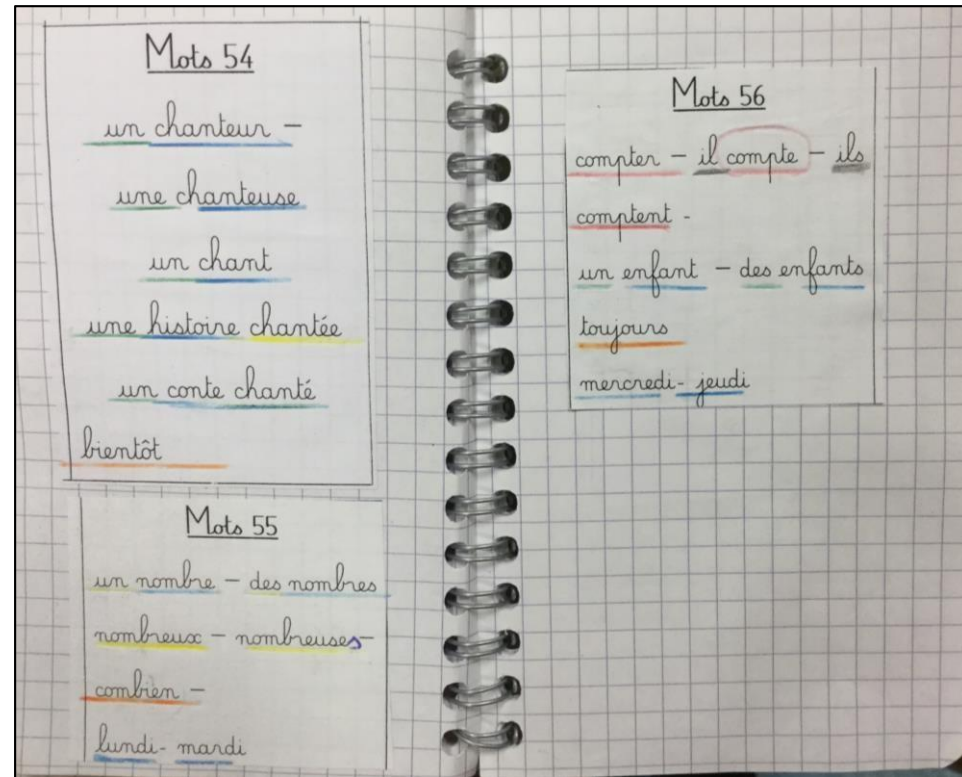 Mots 54
un chanteur –
une chanteuse
un chant
une histoire chantée
un conte chanté
bientôt
Mots 55
un nombre – des nombres
nombreux – nombreuses –
combien –
lundi - mardi
Mots 56
compter – il compte – ils
comptent -
un enfant – des enfants
toujours
mercredi - jeudi